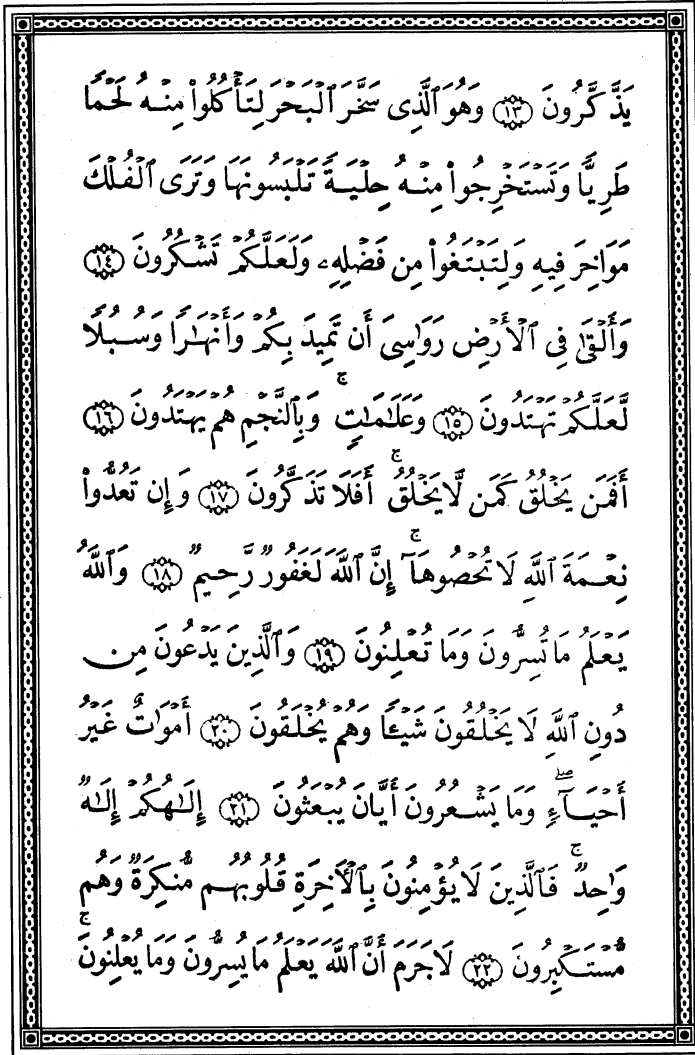 يَذَّكَّرُونَ ﴿١٣﴾ وَهُوَ ٱلَّذِى سَخَّرَ ٱلْبَحْرَ لِتَأْكُلُوا۟ مِنْهُ لَحْمًا
طَرِيًّا وَتَسْتَخْرِجُوا۟ مِنْهُ حِلْيَةً تَلْبَسُونَهَا وَتَرَى ٱلْفُلْكَ
مَوَاخِرَ فِيهِ وَلِتَبْتَغُوا۟ مِن فَضْلِهِۦ وَلَعَلَّكُمْ تَشْكُرُونَ ﴿١٤﴾
وَأَلْقَىٰ فِى ٱلْأَرْضِ رَوَٰسِىَ أَن تَمِيدَ بِكُمْ وَأَنْهَٰرًا وَسُبُلًا
لَّعَلَّكُمْ تَهْتَدُونَ ﴿١٥﴾ وَعَلَٰمَٰتٍ ۚ وَبِٱلنَّجْمِ هُمْ يَهْتَدُونَ ﴿١٦﴾
أَفَمَن يَخْلُقُ كَمَن لَّا يَخْلُقُ ۚ أَفَلَا تَذَكَّرُونَ ﴿١٧﴾ وَإِن تَعُدُّوا۟
نِعْمَةَ ٱللَّهِ لَا تُحْصُوهَآ ۚ إِنَّ ٱللَّهَ لَغَفُورٌ رَّحِيمٌ ﴿١٨﴾ وَٱللَّهُ
يَعْلَمُ مَا تُسِرُّونَ وَمَا تُعْلِنُونَ ﴿١٩﴾ وَٱلَّذِينَ يَدْعُونَ مِن
دُونِ ٱللَّهِ لَا يَخْلُقُونَ شَيْـًٔا وَهُمْ يُخْلَقُونَ ﴿٢٠﴾ أَمْوَٰتٌ غَيْرُ
أَحْيَآءٍ ۖ وَمَا يَشْعُرُونَ أَيَّانَ يُبْعَثُونَ ﴿٢١﴾ إِلَٰهُكُمْ إِلَٰهٌ
وَٰحِدٌ ۚ فَٱلَّذِينَ لَا يُؤْمِنُونَ بِٱلْـَٔاخِرَةِ قُلُوبُهُم مُّنكِرَةٌ وَهُم
مُّسْتَكْبِرُونَ ﴿٢٢﴾ لَا جَرَمَ أَنَّ ٱللَّهَ يَعْلَمُ مَا يُسِرُّونَ وَمَا يُعْلِنُونَ ۚ